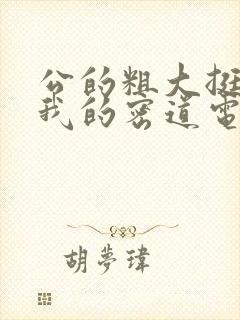 公的粗大挺
我的密道電
胡夢瑋